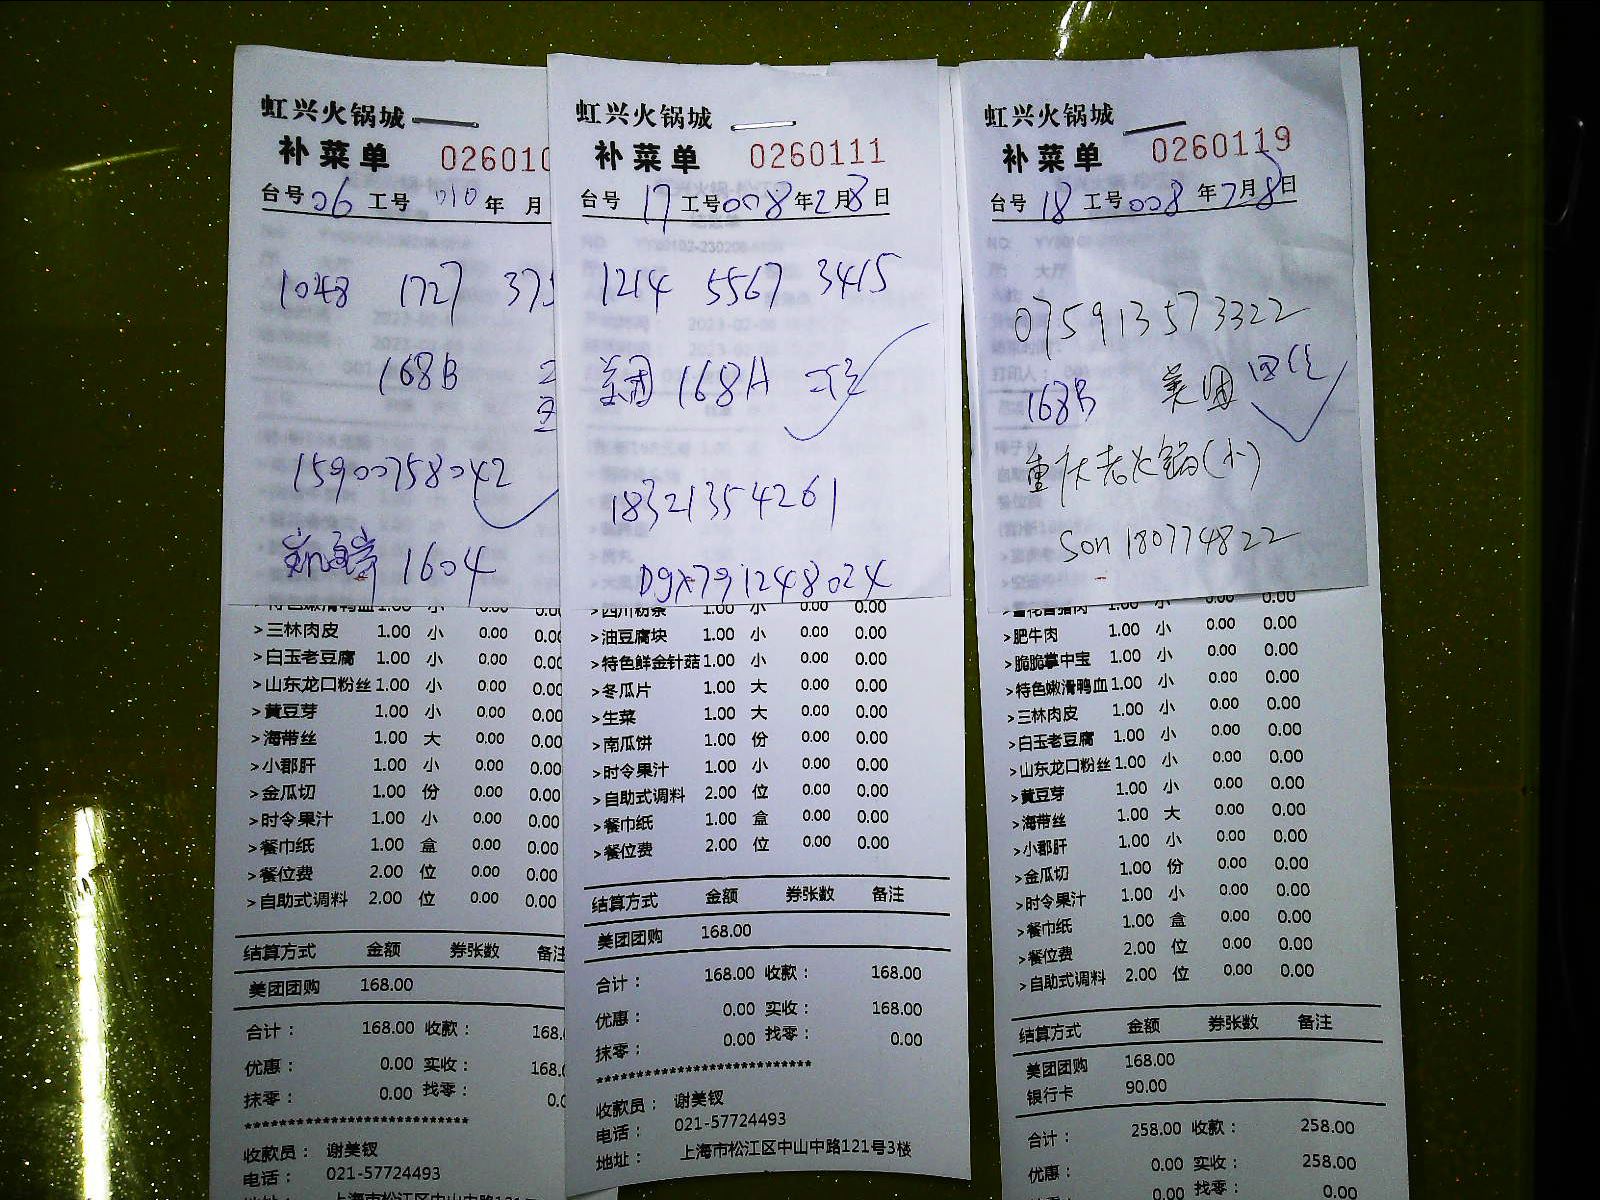 虹兴火锅城
补菜单 026010
台号06 工号010年 月
1048 1727 375
168B
15900758042
1604
>特色嫩滑鸭血1.00 小 0.00 0.00
>三林肉皮 1.00 小 0.00 0.00
>白玉老豆腐 1.00 小 0.00 0.00
>山东龙口粉丝1.00 小 0.00 0.00
>黄豆芽 1.00 小 0.00 0.00
>海带丝 1.00 大 0.00 0.00
>小郡肝 1.00 小 0.00 0.00
>金瓜切 1.00 份 0.00 0.00
>时令果汁 1.00 小 0.00 0.00
>餐巾纸 1.00 盒 0.00 0.00
>餐位费 2.00 位 0.00 0.00
>自助式调料 2.00 位 0.00 0.00
结算方式 金额 券张数 备注
美团团购 168.00
合计： 168.00 收款： 168.
优惠： 0.00 实收： 168.
抹零： 0.00 找零： 0.0
****************************
收款员： 谢美钗
电话： 021-57724493
地址： 上海市松江区中山中路121号
虹兴火锅城
补菜单 0260111
台号 17 工号008年2月8日
1214 5567 3415
美团 168A 二位
18321354261
D9X791248024
>四川粉条 1.00 小 0.00 0.00
>油豆腐块 1.00 小 0.00 0.00
>特色鲜金针菇1.00 小 0.00 0.00
>冬瓜片 1.00 大 0.00 0.00
>生菜 1.00 大 0.00 0.00
>南瓜饼 1.00 份 0.00 0.00
>时令果汁 1.00 小 0.00 0.00
>自助式调料 2.00 位 0.00 0.00
>餐巾纸 1.00 盒 0.00 0.00
>餐位费 2.00 位 0.00 0.00
结算方式 金额 券张数 备注
美团团购 168.00
合计： 168.00 收款： 168.00
优惠： 0.00 实收： 168.00
抹零： 0.00 找零： 0.00
***************************
收款员： 谢美钗
电话： 021-57724493
地址： 上海市松江区中山中路121号3楼
虹兴火锅城
补菜单 0260119
台号 18 工号008 年2月8日
075913573322
168B 美团 四位
重庆老火锅(小)
Son 180774822
>雪花香猪肉 1.00 小 0.00 0.00
>肥牛肉 1.00 小 0.00 0.00
>脆脆掌中宝 1.00 小 0.00 0.00
>特色嫩滑鸭血1.00 小 0.00 0.00
>三林肉皮 1.00 小 0.00 0.00
>白玉老豆腐 1.00 小 0.00 0.00
>山东龙口粉丝1.00 小 0.00 0.00
>黄豆芽 1.00 小 0.00 0.00
>海带丝 1.00 大 0.00 0.00
>小郡肝 1.00 小 0.00 0.00
>金瓜切 1.00 份 0.00 0.00
>时令果汁 1.00 小 0.00 0.00
>餐巾纸 1.00 盒 0.00 0.00
>餐位费 2.00 位 0.00 0.00
>自助式调料 2.00 位 0.00 0.00
结算方式 金额 券张数 备注
美团团购 168.00
银行卡 90.00
合计： 258.00 收款： 258.00
优惠： 0.00 实收： 258.00
0.00 找零： 0.00